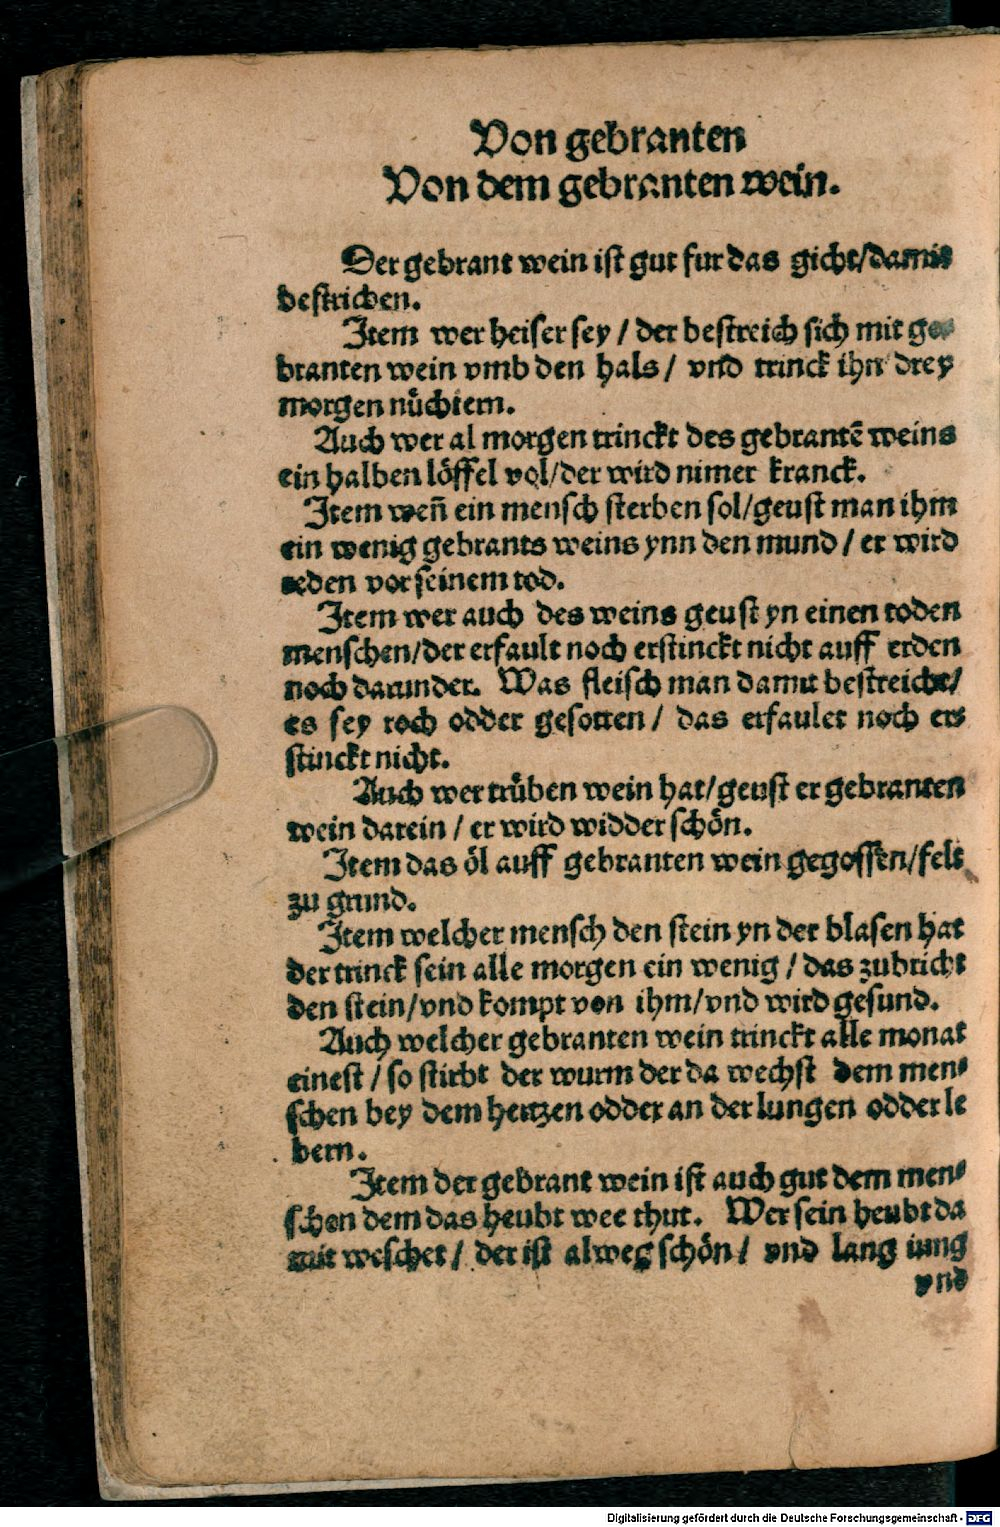 Von gebranten
Von dem gebranten wein.
Der gebrant wein ist gut fur das gicht/damit
bestrichen.
Item wer heiser sey / der bestreich sich mit ge⸗
branten wein vmb den hals / vnd trinck ihn drey
morgen nüchtern.
Auch wer al morgen trinckt des gebrantē weins
ein halben löffel vol/der wird nimer kranck.
Item weñ ein mensch sterben sol/geust man ihm
ein wenig gebrants weins ynn den mund / er wird
reden vor seinem tod.
Item wer auch des weins geust yn einen toden
menschen/der erfault noch erstinckt nicht auff erden
noch darunder. Was fleisch man damit bestreicht/
es sey roch odder gesotten / das erfaulet noch er⸗
stinckt nicht.
Auch wer trüben wein hat/geust er gebranten
wein darein / er wird widder schön.
Item das öl auff gebranten wein gegossen/felt
zu grund.
Item welcher mensch den stein yn der blasen hat
der trinck sein alle morgen ein wenig / das zubricht
den stein/vnd kompt von ihm/vnd wird gesund.
Auch welcher gebranten wein trinckt alle monat
einest / so stirbt der wurm der da wechst dem men⸗
schen bey dem hertzen odder an der lungen odder le
bern.
Item der gebrant wein ist auch gut dem men⸗
schen dem das heubt wee thut. Wer sein heubt da
mit weschet / der ist alweg schön / vnd lang iung
vnd
Digitalisierung gefördert durch die Deutsche Forschungsgemeinschaft - DFG